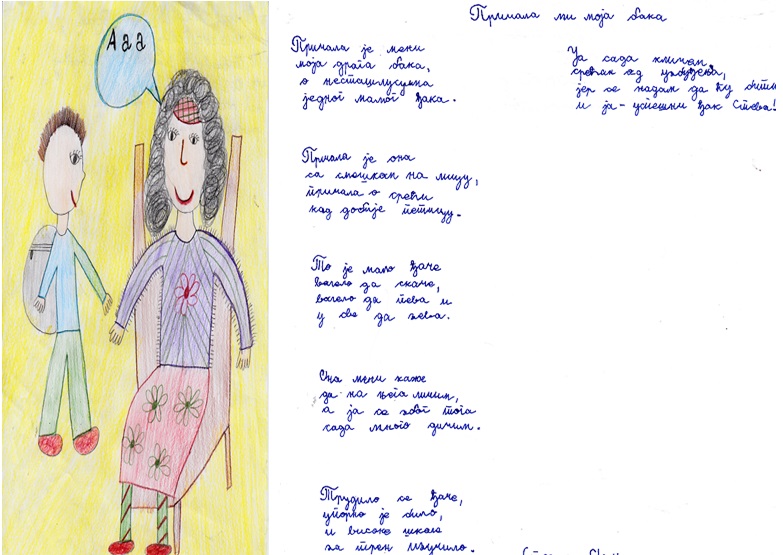 А а а
Причала ми моја бака
Причала је мени
моја драга бака,
о
једног малог ђака.
Причала је она
са смешком на лицу,
причала о срећи
кад добије петицу.
То је мало ђаче
волело да скаче,
волело да пева и
у све да зева.
Она мени каже
да на њега личим,
а ја се због тога
сада много дичим.
Трудило се ђаче,
упорно је било,
и високе школе
за трен изучило.
Ја сада кличем,
срећан од узбуђења,
јер се надам да ћу бити
и ја - успешни ђак Стева!